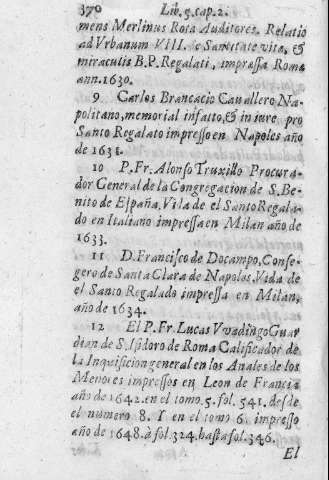 370 Lib. 5. cap. 2.
mens Merlinus Rota Auditores. Relatio
ad Vrbanum VIII. Sanctitate vita, &
miraculis B. P. Regalati, impressa Roma
ann. 1630.
9 Carlos Brancacio Cauallero Na-
politano, memorial in facto, & in iure pro
Santo Regalato impresso en Napoles año
de 1631.
10 P. Fr. Alonso Truxillo Procura-
dor General de la Congregacion de S. Be-
nito de España, Vida de el Santo Regala-
do en Italiano impressa en Milan año de
1633.
11 D. Francisco de Docampo, Conse-
gero de Santa Clara de Napoles, Vida de
el Santo Regalado impressa en Milan,
año de 1634.
12 El P. Fr. Lucas Vvadingo Guar
dian de S. Isidoro de Roma Calificador de
la Inquisicion general en los Anales de los
Menores impressos en Leon de Francia
año de 1642. en el tomo 5. fol. 541. desde
el numero 8. Y en el tomo 6. impresso
año de 1648. à fol. 324. hasta fol. 346.
El